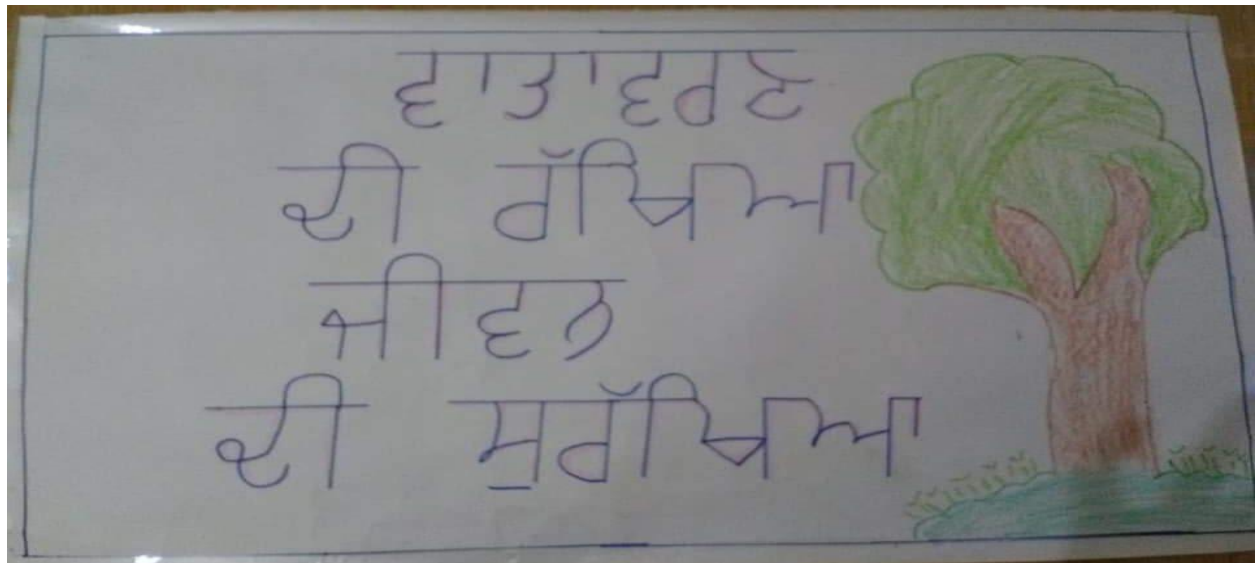 ਵਾਤਾਵਰਣ
ਦੀ ਰੱਖਿਆ
ਜੀਵਨ
ਦੀ ਸੁਰੱਖਿਆ